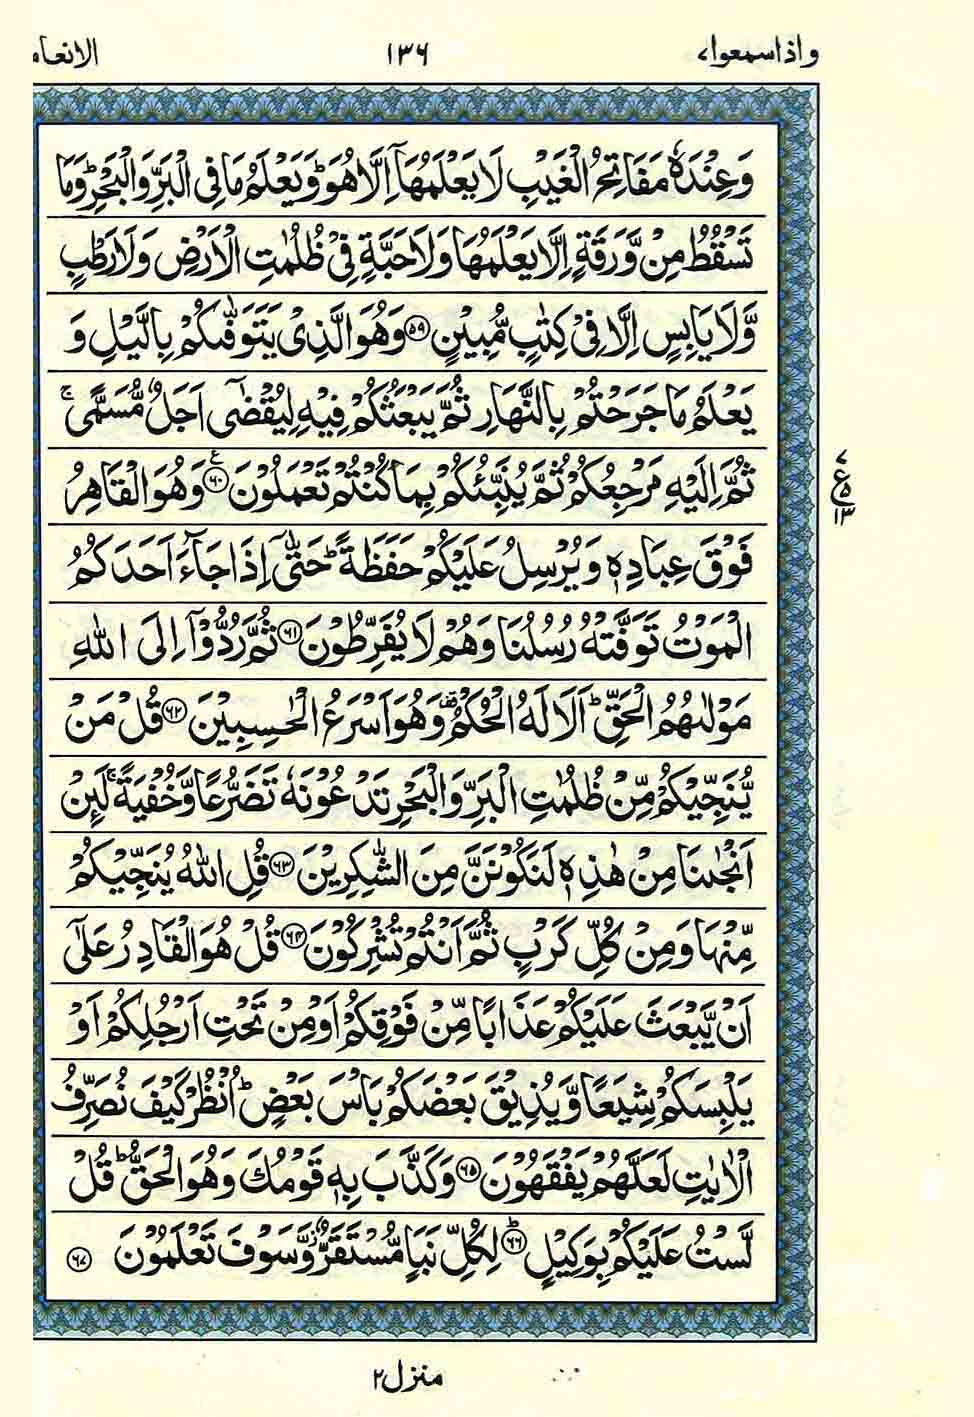 واذاسمعوا٧ ١٣٦ الانعام
وَعِنْدَهٗ مَفَاتِحُ الْغَيْبِ لَا يَعْلَمُهَاۤ اِلَّا هُوَؕ وَيَعْلَمُ مَا فِى الْبَرِّ وَالْبَحْرِؕ وَمَا
تَسْقُطُ مِنْ وَّرَقَةٍ اِلَّا يَعْلَمُهَا وَلَا حَبَّةٍ فِىْ ظُلُمٰتِ الْاَرْضِ وَلَا رَطْبٍ
وَّلَا يَابِسٍ اِلَّا فِىْ كِتٰبٍ مُّبِيْنٍ ۝۵۹ وَهُوَ الَّذِىْ يَتَوَفّٰٮكُمْ بِالَّيْلِ وَ
يَعْلَمُ مَا جَرَحْتُمْ بِالنَّهَارِ ثُمَّ يَبْعَثُكُمْ فِيْهِ لِيُقْضٰٓى اَجَلٌ مُّسَمًّىۚ
ثُمَّ اِلَيْهِ مَرْجِعُكُمْ ثُمَّ يُنَبِّئُكُمْ بِمَا كُنْتُمْ تَعْمَلُوْنَ ۝۶۰ۧ وَهُوَ الْقَاهِرُ
٧ ع ۵ ١٣
فَوْقَ عِبَادِهٖ وَيُرْسِلُ عَلَيْكُمْ حَفَظَةًؕ حَتّٰٓى اِذَا جَآءَ اَحَدَكُمُ
الْمَوْتُ تَوَفَّتْهُ رُسُلُنَا وَهُمْ لَا يُفَرِّطُوْنَ ۝۶۱ ثُمَّ رُدُّوْۤا اِلَى اللّٰهِ
مَوْلٰٮهُمُ الْحَقِّؕ اَلَا لَهُ الْحُكْمُ وَهُوَ اَسْرَعُ الْحٰسِبِيْنَ ۝۶۲ قُلْ مَنْ
يُّنَجِّيْكُمْ مِّنْ ظُلُمٰتِ الْبَرِّ وَالْبَحْرِ تَدْعُوْنَهٗ تَضَرُّعًا وَّخُفْيَةًۚ لَئِنْ
اَنْجٰٮنَا مِنْ هٰذِهٖ لَنَكُوْنَنَّ مِنَ الشّٰكِرِيْنَ ۝۶۳ قُلِ اللّٰهُ يُنَجِّيْكُمْ
مِّنْهَا وَمِنْ كُلِّ كَرْبٍ ثُمَّ اَنْتُمْ تُشْرِكُوْنَ ۝۶۴ قُلْ هُوَ الْقَادِرُ عَلٰٓى
اَنْ يَّبْعَثَ عَلَيْكُمْ عَذَابًا مِّنْ فَوْقِكُمْ اَوْ مِنْ تَحْتِ اَرْجُلِكُمْ اَوْ
يَلْبِسَكُمْ شِيَعًا وَّيُذِيْقَ بَعْضَكُمْ بَاْسَ بَعْضٍؕ اُنْظُرْ كَيْفَ نُصَرِّفُ
الْاٰيٰتِ لَعَلَّهُمْ يَفْقَهُوْنَ ۝۶۵ وَكَذَّبَ بِهٖ قَوْمُكَ وَهُوَ الْحَقُّؕ قُلْ
لَّسْتُ عَلَيْكُمْ بِوَكِيْلٍؕ ۝۶۶ لِكُلِّ نَبَاٍ مُّسْتَقَرٌّؗ وَّسَوْفَ تَعْلَمُوْنَ ۝۶۷
منزل٢